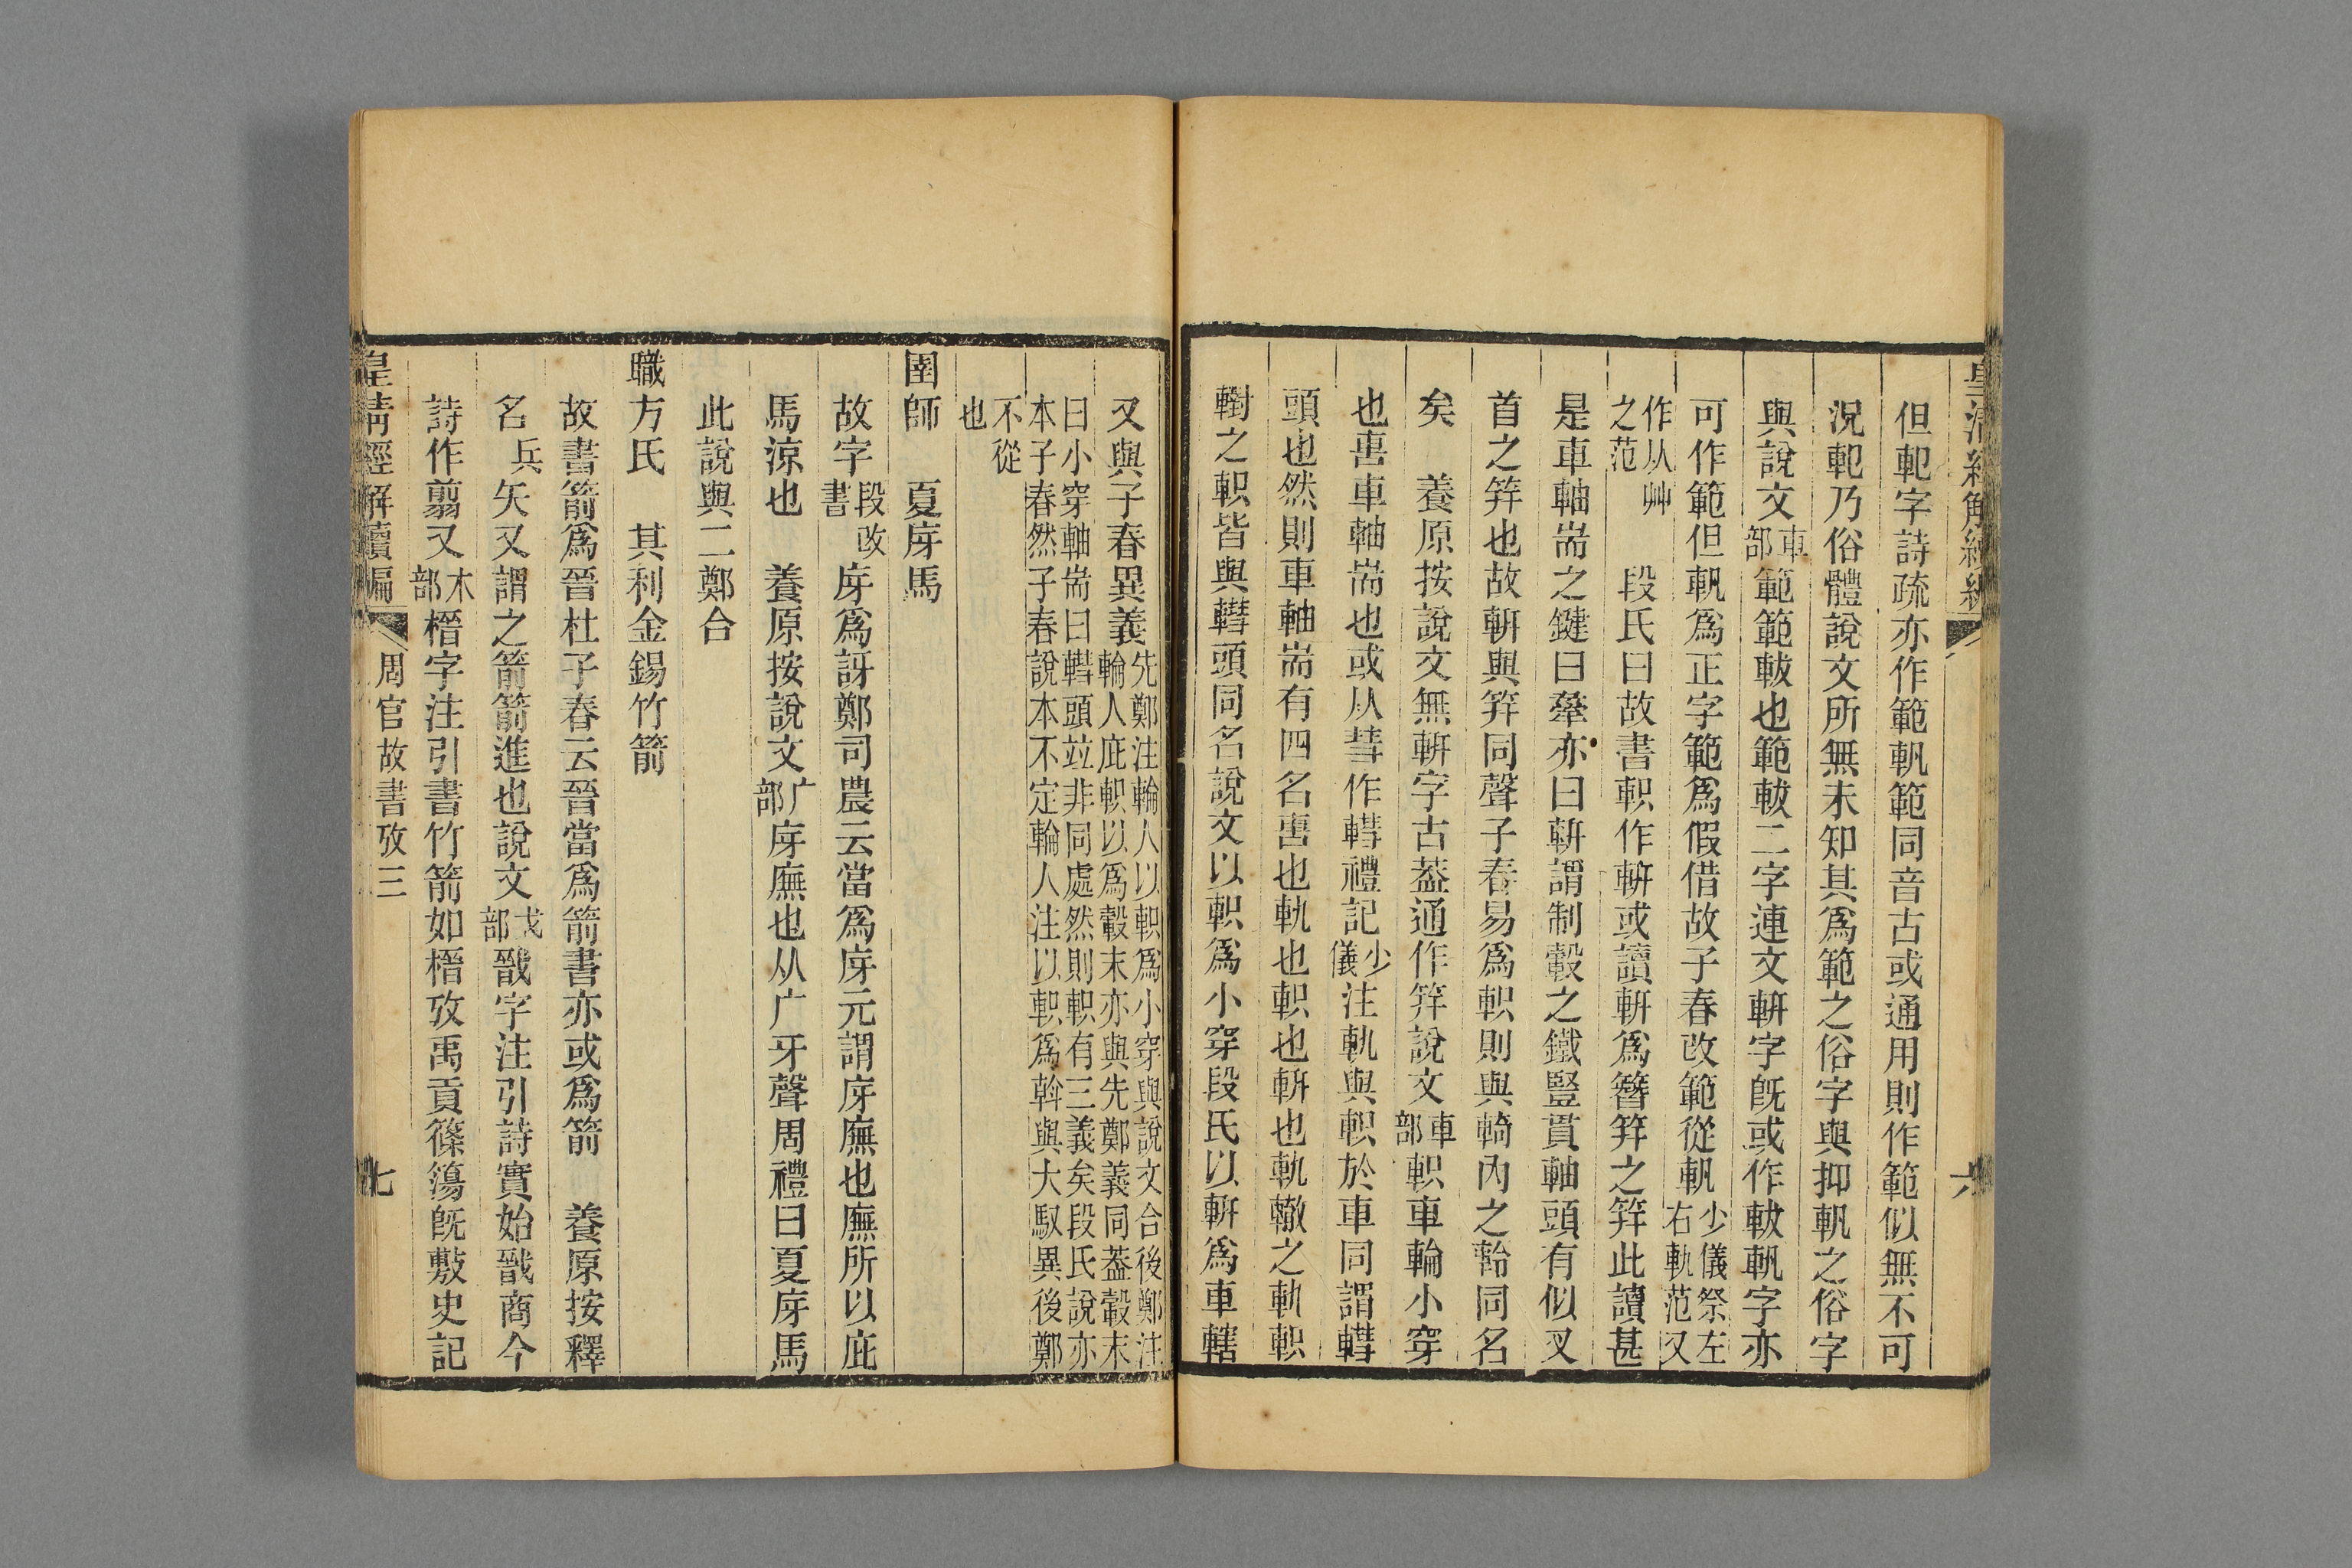 但軓字詩疏亦作範軓範同音古或通用則作範似無不可
況軓乃俗體說文所無未知其爲範之俗字與抑軓之俗字
與說文車部範範軷也範軷二字連文軿字旣或作軷軓字亦
可作範但軓爲正字範爲假借故子春改範從軓少儀祭左右軌范又
作从艸之范　段氏曰故書軹作軿或讀軿爲簪笄之笄此讀甚
是車軸耑之鍵曰舝亦曰軿謂制轂之鐵豎貫軸頭有似叉
首之笄也故軿與笄同聲子春易爲軹則與輢內之軩同名
矣　養原按說文無軿字古葢通作笄說文車部軹車輪小穿
也軎車軸耑也或从彗作轊禮記少儀注軌與軹於車同謂轊
頭也然則車軸耑有四名軎也軌也軹也軿也軌轍之軌軹
轛之軹皆與轊頭同名說文以軹爲小穿段氏以軿爲車轄
皇清經解續編
六
又與子春異義先鄭注輪人以軹爲小穿與說文合後鄭注
輪人庇軹以爲轂末亦與先鄭義同葢轂末
曰小穿軸耑曰轊頭竝非同處然則軹有三義矣段氏說亦
本子春然子春說本不定輪人注以軹爲斡與大馭異後鄭
不從
也
圉師　夏庌馬
故字段改書　庌爲訝鄭司農云當爲庌元謂庌廡也廡所以庇
馬涼也　養原按說文广部庌廡也从广牙聲周禮曰夏庌馬
此說與二鄭合
職方氏　其利金錫竹箭
故書箭爲晉杜子春云晉當爲箭書亦或爲箭　養原按釋
名兵　矢又謂之箭箭進也說文戈部戩字注引詩實始戩商今
詩作翦又木部榗字注引書竹箭如榗攷禹貢篠簜旣敷史記
皇清經解續編　周官故書攷三　七